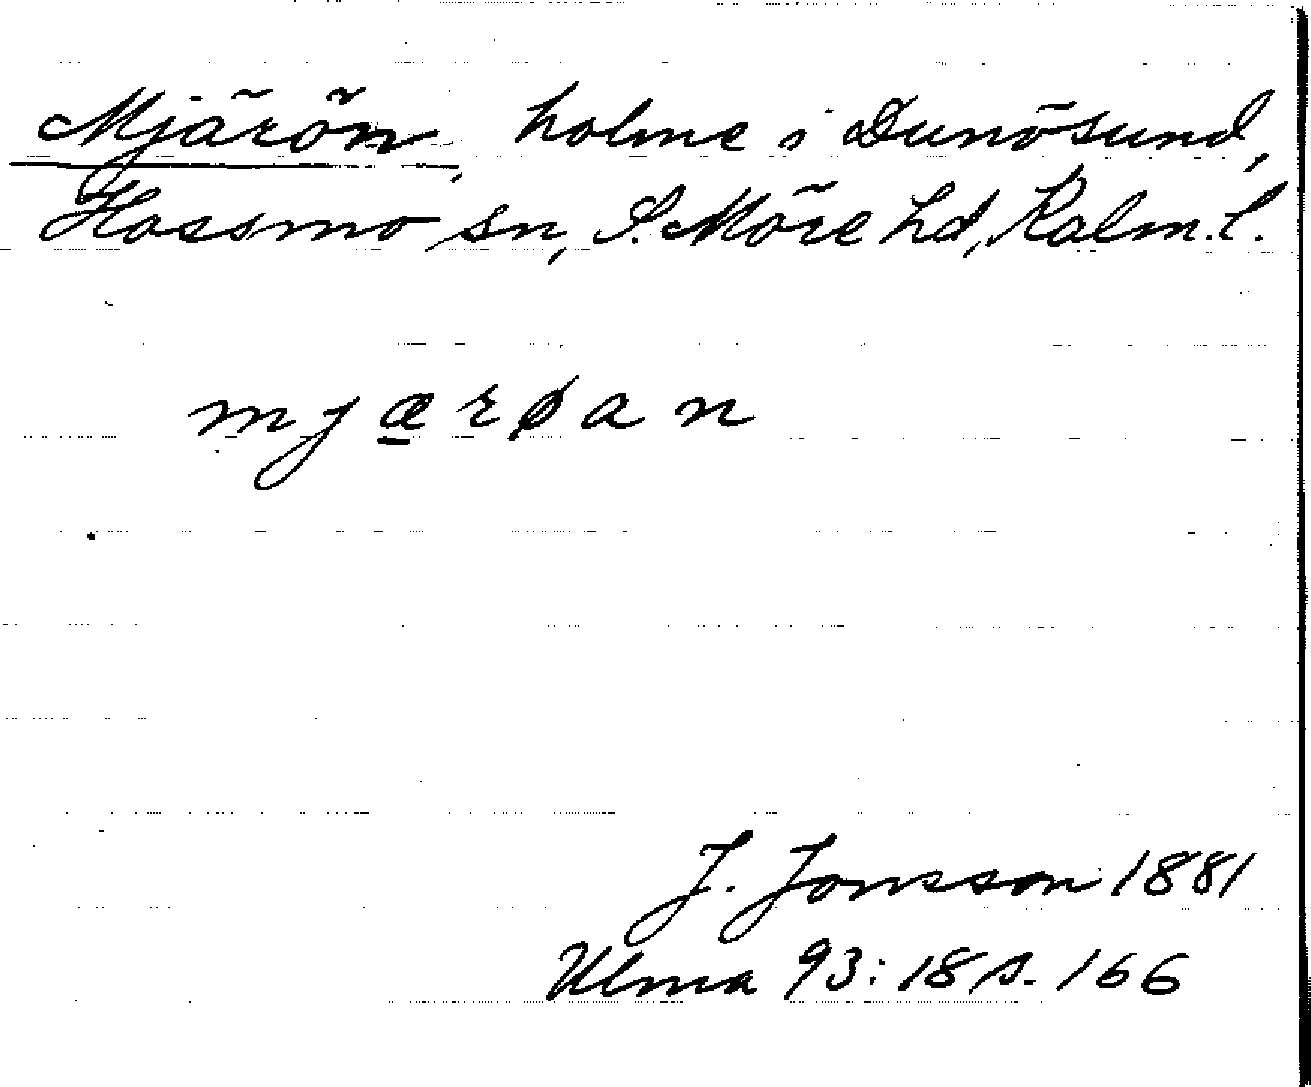 Mjärön, holme i Dunösund,
Hossmo sn, S. Möre hd, Kalm. l.
mjæ̲røan
J. Jonsson 1881
Ulma 93:18 s. 166